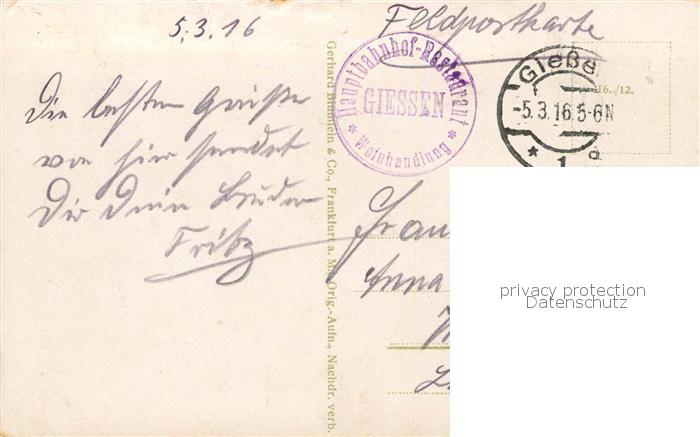 5.3.16
Feldpostkarte
Hauptbahnhof-Restaurant
GIESSEN
* Weinhandlung *
Gieße
-5.3.16.5-6N
* 1
16./12.
Die besten Grüße
von hier sendet
Dir Dein Bruder
Fritz
Gerhard Blümlein & Co., Frankfurt a. M. Orig.-Aufn., Nachdr. verb.
Frau
Anna
privacy protection
Datenschutz